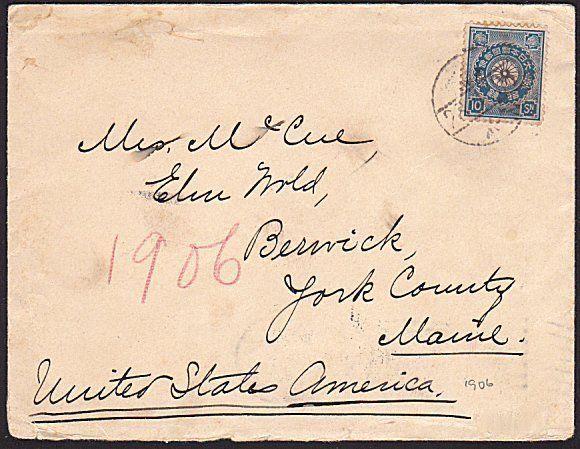 10 Sn
Mrs. McCue,
Elm Wold,
1906
Berwick,
York County
Maine.
United States America.
1906